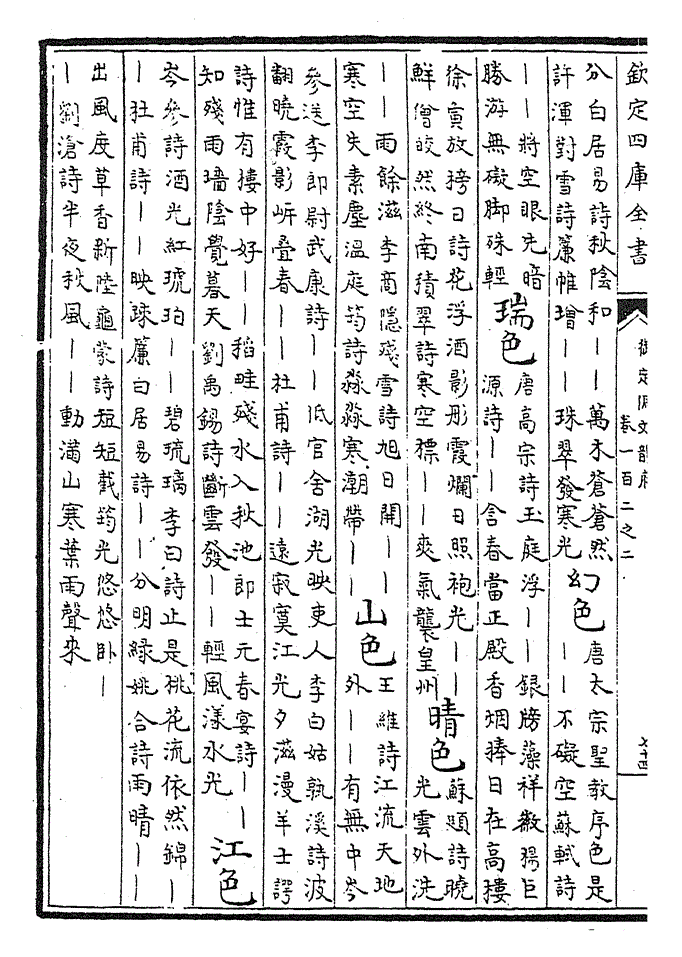 欽定四庫全書
御定佩文韻府
卷一百二之二
分白居易詩秋陰和——萬木蒼蒼然
許渾對雪詩簾帷增——珠翠發寒光
幻色
唐太宗聖教序色是
——不礙空蘇軾詩
——將空眼先暗
勝游無礙脚殊輕
瑞色
唐高宗詩玉庭浮——銀牓藻祥徽楊巨
源詩——含春當正殿香烟捧日在高樓
徐寅放榜日詩花浮酒影彤霞爛日照袍光——
鮮僧皎然終南積翠詩寒空標——爽氣襲皇州
晴色
蘇頲詩曉
光雲外洗
——雨餘滋李商隱殘雪詩旭日開——
寒空失素塵溫庭筠詩淼淼寒潮帶——
山色
王維詩江流天地
外——有無中岑
參送李郎尉武康詩——低官舍湖光映吏人李白姑孰溪詩波
翻曉霞影岍疊春——杜甫詩——遠寂寞江光夕滋漫羊士諤
詩惟有樓中好——稻畦殘水入秋池郎士元春宴詩——
知殘雨墻陰覺暮天劉禹錫詩斷雲發——輕風漾水光
江色
岑參詩酒光紅琥珀——碧琉璃李白詩止是桃花流依然錦—
—杜甫詩——映疎簾白居易詩——分明綠姚合詩雨晴——
出風度草香新陸龜蒙詩短短截筠光悠悠卧—
—劉滄詩半夜秋風——動滿山寒葉雨聲來